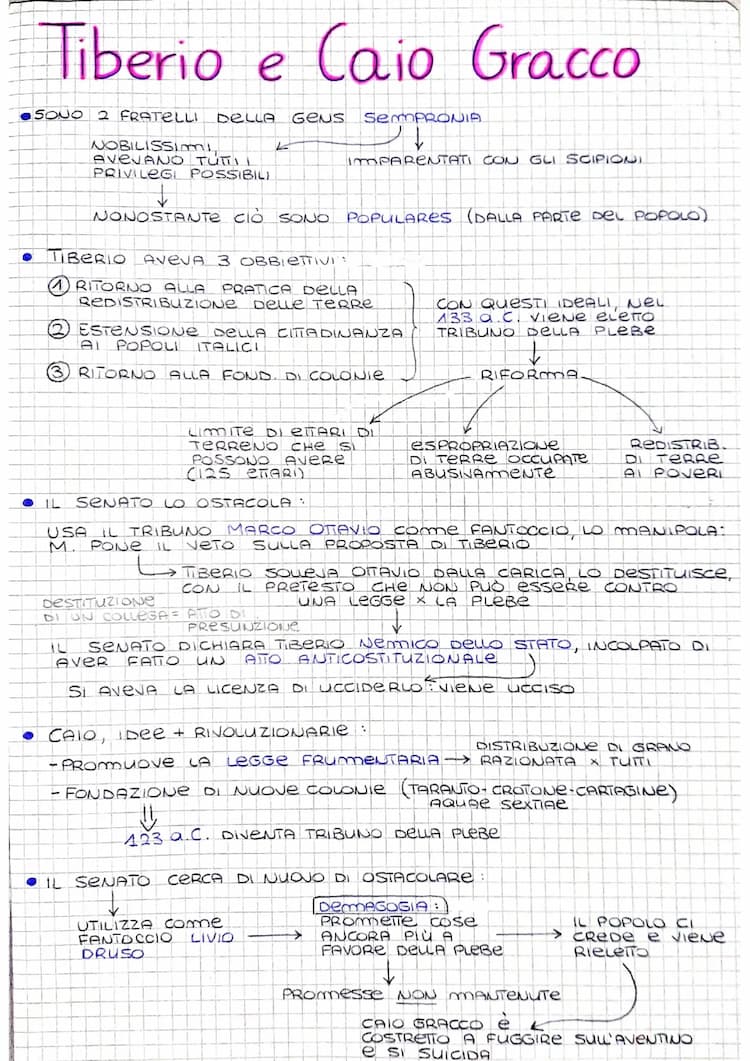 Tiberio e Caio Gracco
• SONO 2 FRATELLI DELLA GENS SEMPRONIA
NOBILISSIMI,
AVEVANO TUTTI I
PRIVILEGI POSSIBILI
IMPARENTATI CON GLI SCIPIONI
NONOSTANTE CIÒ SONO POPULARES (DALLA PARTE DEL POPOLO)
• TIBERIO AVEVA 3 OBBIETTIVI:
1 RITORNO ALLA PRATICA DELLA
REDISTRIBUZIONE DELLE TERRE
2 ESTENSIONE DELLA CITTADINANZA
AI POPOLI ITALICI
3 RITORNO ALLA FOND. DI COLONIE
CON QUESTI IDEALI, NEL
133 a.C. VIENE ELETTO
TRIBUNO DELLA PLEBE
RIFORMA
LIMITE DI ETTARI DI
TERRENO CHE SI
POSSONO AVERE
(125 ETTARI)
ESPROPRIAZIONE
DI TERRE OCCUPATE
ABUSIVAMENTE
REDISTRIB.
DI TERRE
AI POVERI
• IL SENATO LO OSTACOLA:
USA IL TRIBUNO MARCO OTTAVIO COME FANTOCCIO, LO MANIPOLA:
M. PONE IL VETO SULLA PROPOSTA DI TIBERIO
TIBERIO SOLLEVA OTTAVIO DALLA CARICA, LO DESTITUISCE,
CON IL PRETESTO CHE NON PUÒ ESSERE CONTRO
UNA LEGGE × LA PLEBE
DESTITUZIONE
DI UN COLLEGA = ATTO DI
PRESUNZIONE
IL SENATO DICHIARA TIBERIO NEMICO DELLO STATO, INCOLPATO DI
AVER FATTO UN ATTO ANTICOSTITUZIONALE
SI AVEVA LA LICENZA DI UCCIDERLO: VIENE UCCISO
• CAIO, IDEE + RIVOLUZIONARIE:
- PROMUOVE LA LEGGE FRUMENTARIA → DISTRIBUZIONE DI GRANO
RAZIONATA × TUTTI
- FONDAZIONE DI NUOVE COLONIE (TARANTO-CROTONE-CARTAGINE)
AQUAE SEXTIAE
123 a.C. DIVENTA TRIBUNO DELLA PLEBE
• IL SENATO CERCA DI NUOVO DI OSTACOLARE:
UTILIZZA COME
FANTOCCIO LIVIO
DRUSO
DEMAGOGIA:
PROMETTE COSE
ANCORA PIÙ A
FAVORE DELLA PLEBE
IL POPOLO CI
CREDE E VIENE
RIELETTO
PROMESSE NON MANTENUTE
CAIO GRACCO È
COSTRETTO A FUGGIRE SULL'AVENTINO
E SI SUICIDA